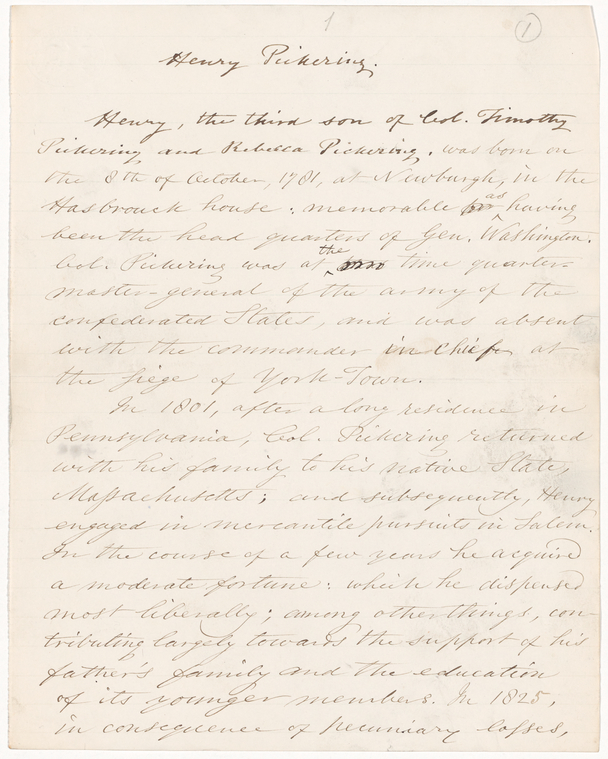 1
1
Henry Pickering.
Henry, the third son of Col. Timothy
Pickering and Rebecca Pickering, was born on
the 8th of October, 1781, at Newburgh, in the
Hasbrouck house: memorable for as having
been the head quarters of Gen. Washington.
Col. Pickering was at the time quarter-
master-general of the army of the
confederated States, and was absent
with the commander in chief, at
the siege of York-Town.
In 1801, after a long residence in
Pennsylvania, Col. Pickering returned
with his family to his native State,
Massachusetts; and subsequently, Henry
engaged in mercantile pursuits in Salem.
In the course of a few years he acquired
a moderate fortune: which he dispensed
most liberally; among other things, con-
tributing largely towards the support of his
father's family and the education
of its younger members. In 1825,
in consequence of pecuniary losses,